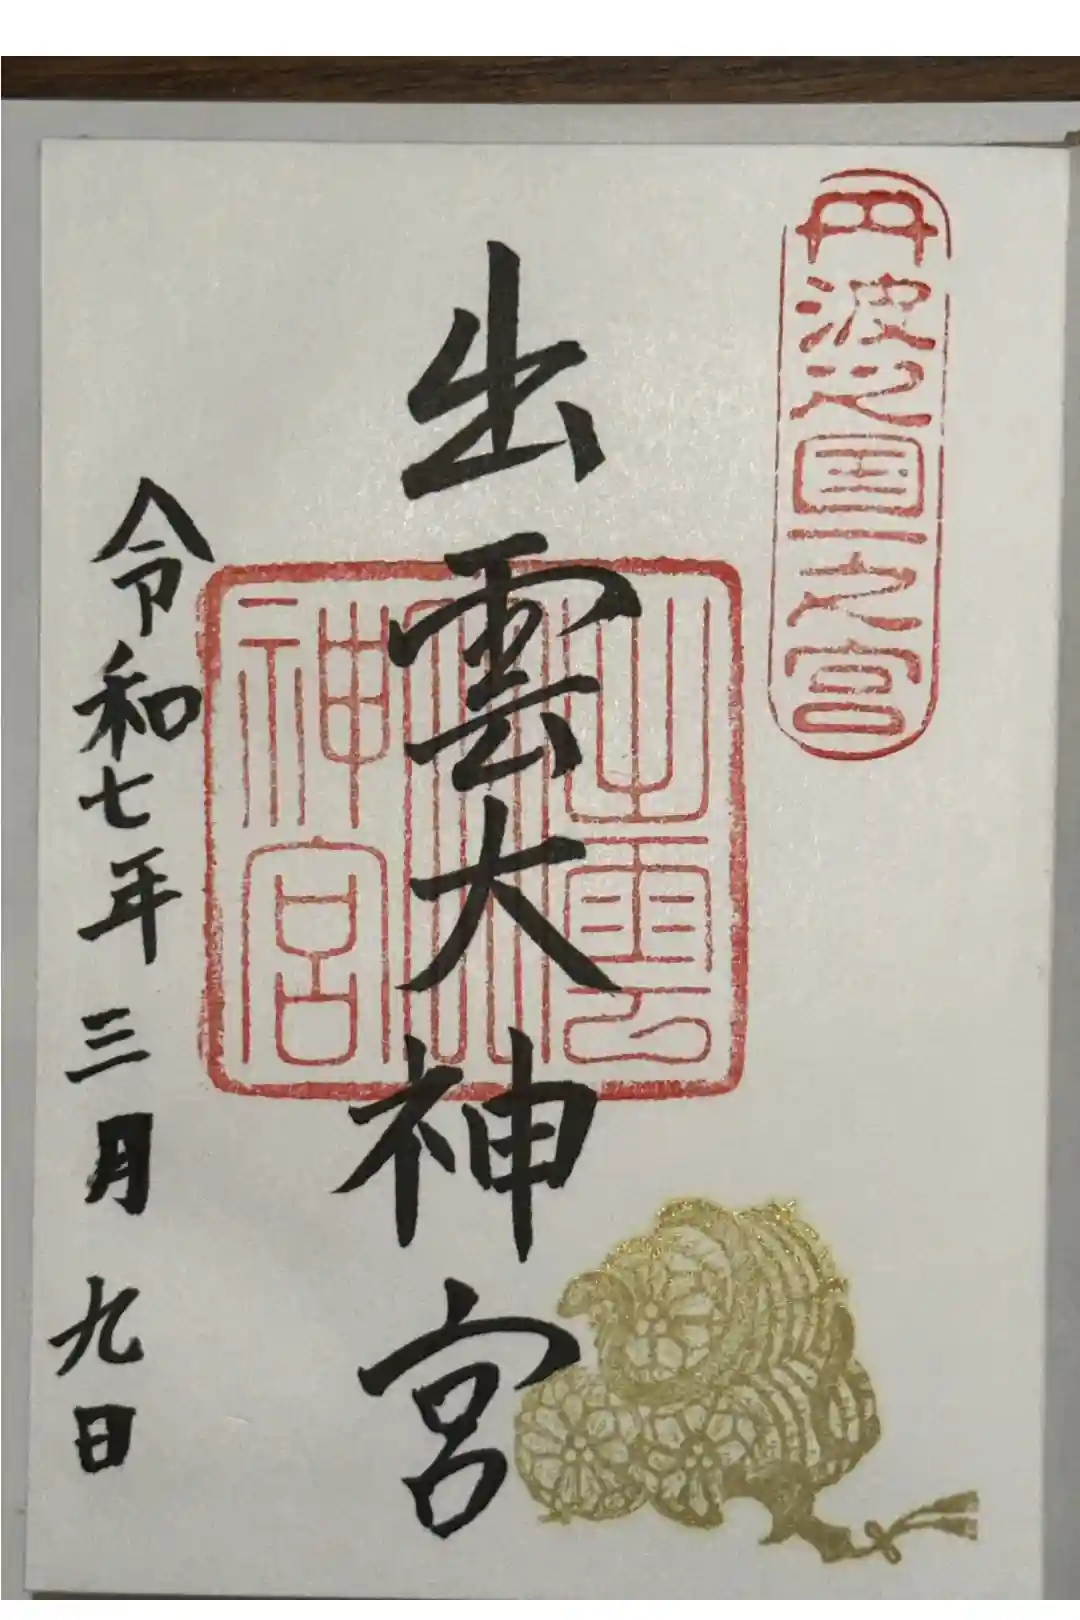 丹波之国一之宮
出雲大神宮
出雲
大
神宮
令和七年三月九日